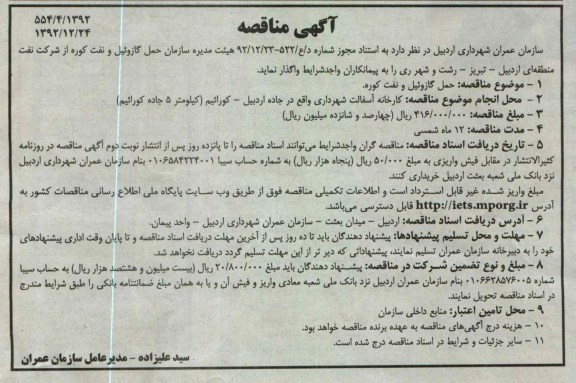 آگهی مناقصه
۵۵۴/۴/۱۳۹۲
۱۳۹۲/۱۲/۲۴
سازمان عمران شهرداری اردبیل در نظر دارد به استناد مجوز شماره د/ع/۵۲۲-۹۲/۱۲/۲۳ هیئت مدیره سازمان حمل گازوئیل و نفت کوره از شرکت نفت
منطقه‌ای اردبیل – تبریز – رشت و شهر ری را به پیمانکاران واجدشرایط واگذار نماید.
۱ – موضوع مناقصه: حمل گازوئیل و نفت کوره.
۲ – محل انجام موضوع مناقصه: کارخانه آسفالت شهرداری واقع در جاده اردبیل – کورائیم (کیلومتر ۵ جاده کورائیم)
۳ – مبلغ مناقصه: ۴۱۶/۰۰۰/۰۰۰ ریال (چهارصد و شانزده میلیون ریال)
۴ – مدت مناقصه: ۱۲ ماه شمسی
۵ – تاریخ دریافت اسناد مناقصه: مناقصه گران واجدشرایط می‌توانند اسناد مناقصه را تا پانزده روز پس از انتشار نوبت دوم آگهی مناقصه در روزنامه
کثیرالانتشار در مقابل فیش واریزی به مبلغ ۵۰/۰۰۰ ریال (پنجاه هزار ریال) به شماره حساب سیبا ۰۱۰۶۵۸۴۲۲۴۰۰۱ بنام سازمان عمران شهرداری اردبیل
نزد بانک ملی شعبه بعثت اردبیل خریداری کنند.
مبلغ واریز شده غیر قابل استرداد است و اطلاعات تکمیلی مناقصه فوق از طریق وب سایت پایگاه ملی اطلاع رسانی مناقصات کشور به
آدرس http://iets.mporg.ir قابل دسترسی می‌باشد.
۶ – آدرس دریافت اسناد مناقصه: اردبیل – میدان بعثت – سازمان عمران شهرداری اردبیل – واحد پیمان.
۷ – مهلت و محل تسلیم پیشنهادها: پیشنهاد دهندگان باید تا ده روز پس از آخرین مهلت دریافت اسناد مناقصه و تا پایان وقت اداری پیشنهادهای
خود را به دبیرخانه سازمان عمران تسلیم نمایند، پیشنهاداتی که دیر تر از این مهلت تسلیم گردد دریافت نخواهد شد.
۸ – مبلغ و نوع تضمین شرکت در مناقصه: پیشنهاد دهندگان باید مبلغ ۲۰/۸۰۰/۰۰۰ ریال (بیست میلیون و هشتصد هزار ریال) به حساب سیبا
شماره ۰۱۰۶۶۲۸۵۷۶۰۰۵ بنام سازمان عمران اردبیل نزد بانک ملی شعبه معادی واریز و فیش آن و یا به همان مبلغ ضمانتنامه بانکی را طبق شرایط مندرج
در اسناد مناقصه تحویل نمایند.
۹ – محل تامین اعتبار: منابع داخلی سازمان
۱۰ – هزینه درج آگهی‌های مناقصه به عهده برنده مناقصه خواهد بود.
۱۱ – سایر جزئیات و شرایط در اسناد مناقصه درج شده است.
سید علیزاده – مدیرعامل سازمان عمران